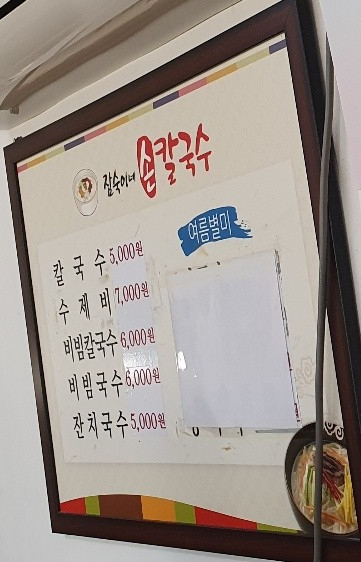 잠숙이네 손칼국수
여름별미
칼국수 5,000원
수제비 7,000원
비빔칼국수 6,000원
비빔국수 6,000원
잔치국수 5,000원